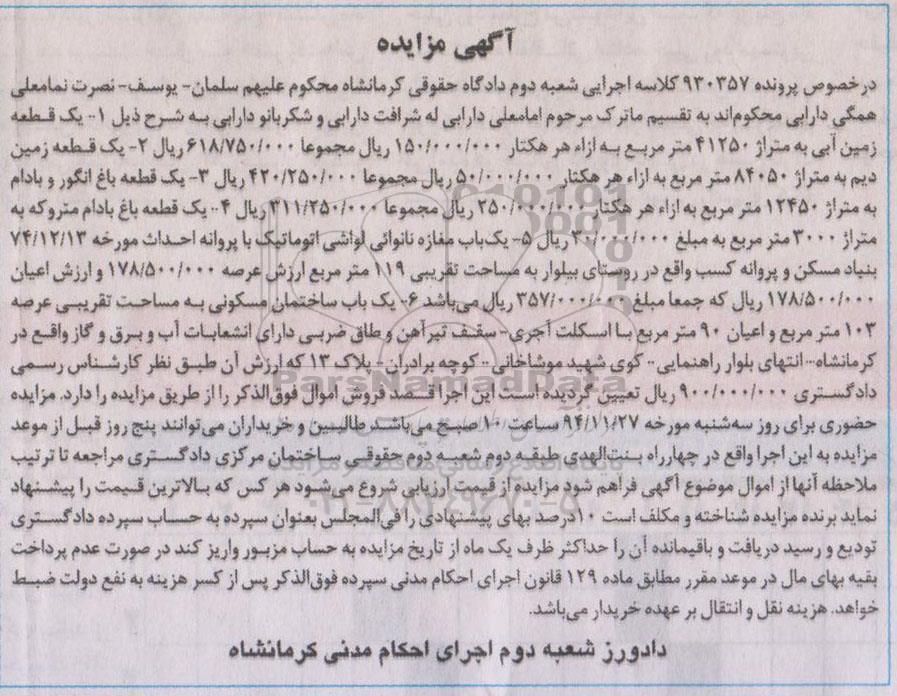 آگهی مزایده
درخصوص پرونده ۹۳۰۳۵۷ کلاسه اجرایی شعبه دوم دادگاه حقوقی کرمانشاه محکوم علیهم سلمان- یوسف- نصرت نمامعلی
همگی دارابی محکوم‌اند به تقسیم ماترک مرحوم امامعلی دارابی له شرافت دارابی و شکربانو دارابی به شرح ذیل ۱- یک قطعه
زمین آبی به متراژ ۴۱۲۵۰ متر مربع به ازاء هر هکتار ۱۵۰/۰۰۰/۰۰۰ ریال مجموعا ۶۱۸/۷۵۰/۰۰۰ ریال ۲- یک قطعه زمین
دیم به متراژ ۸۴۰۵۰ متر مربع به ازاء هر هکتار ۵۰/۰۰۰/۰۰۰ ریال مجموعا ۴۲۰/۲۵۰/۰۰۰ ریال ۳- یک قطعه باغ انگور و بادام
به متراژ ۱۲۴۵۰ متر مربع به ازاء هر هکتار ۲۵۰/۰۰۰/۰۰۰ ریال مجموعا ۳۱۱/۲۵۰/۰۰۰ ریال ۴- یک قطعه باغ بادام متروکه به
متراژ ۳۰۰۰ متر مربع به مبلغ ۳۰/۰۰۰/۰۰۰ ریال ۵- یک‌باب مغازه نانوائی لواشی اتوماتیک با پروانه احداث مورخه ۷۴/۱۲/۱۳
بنیاد مسکن و پروانه کسب واقع در روستای بیلوار به مساحت تقریبی ۱۱۹ متر مربع ارزش عرصه ۱۷۸/۵۰۰/۰۰۰ و ارزش اعیان
۱۷۸/۵۰۰/۰۰۰ ریال که جمعا مبلغ ۳۵۷/۰۰۰/۰۰۰ ریال می‌باشد ۶- یک باب ساختمان مسکونی به مساحت تقریبی عرصه
۱۰۳ متر مربع و اعیان ۹۰ متر مربع با اسکلت آجری- سقف تیرآهن و طاق ضربی دارای انشعابات آب و برق و گاز واقع در
کرمانشاه- انتهای بلوار راهنمایی- کوی شهید موشاخانی- کوچه برادران- پلاک ۱۳ که ارزش آن طبق نظر کارشناس رسمی
دادگستری ۹۰۰/۰۰۰/۰۰۰ ریال تعیین گردیده است این اجرا قصد فروش اموال فوق‌الذکر را از طریق مزایده را دارد. مزایده
حضوری برای روز سه‌شنبه مورخه ۹۴/۱۱/۲۷ ساعت ۱۰ صبح می‌باشد طالبین و خریداران می‌توانند پنج روز قبل از موعد
مزایده به این اجرا واقع در چهارراه بنت‌الهدی طبقه دوم شعبه دوم حقوقی ساختمان مرکزی دادگستری مراجعه تا ترتیب
ملاحظه آنها از اموال موضوع آگهی فراهم شود مزایده از قیمت ارزیابی شروع می‌شود هر کس که بالاترین قیمت را پیشنهاد
نماید برنده مزایده شناخته و مکلف است ۱۰درصد بهای پیشنهادی را فی‌المجلس بعنوان سپرده به حساب سپرده دادگستری
تودیع و رسید دریافت و باقیمانده آن را حداکثر ظرف یک ماه از تاریخ مزایده به حساب مزبور واریز کند در صورت عدم پرداخت
بقیه بهای مال در موعد مقرر مطابق ماده ۱۲۹ قانون اجرای احکام مدنی سپرده فوق‌الذکر پس از کسر هزینه به نفع دولت ضبط
خواهد. هزینه نقل و انتقال بر عهده خریدار می‌باشد.
دادورز شعبه دوم اجرای احکام مدنی کرمانشاه
ParsNamadData